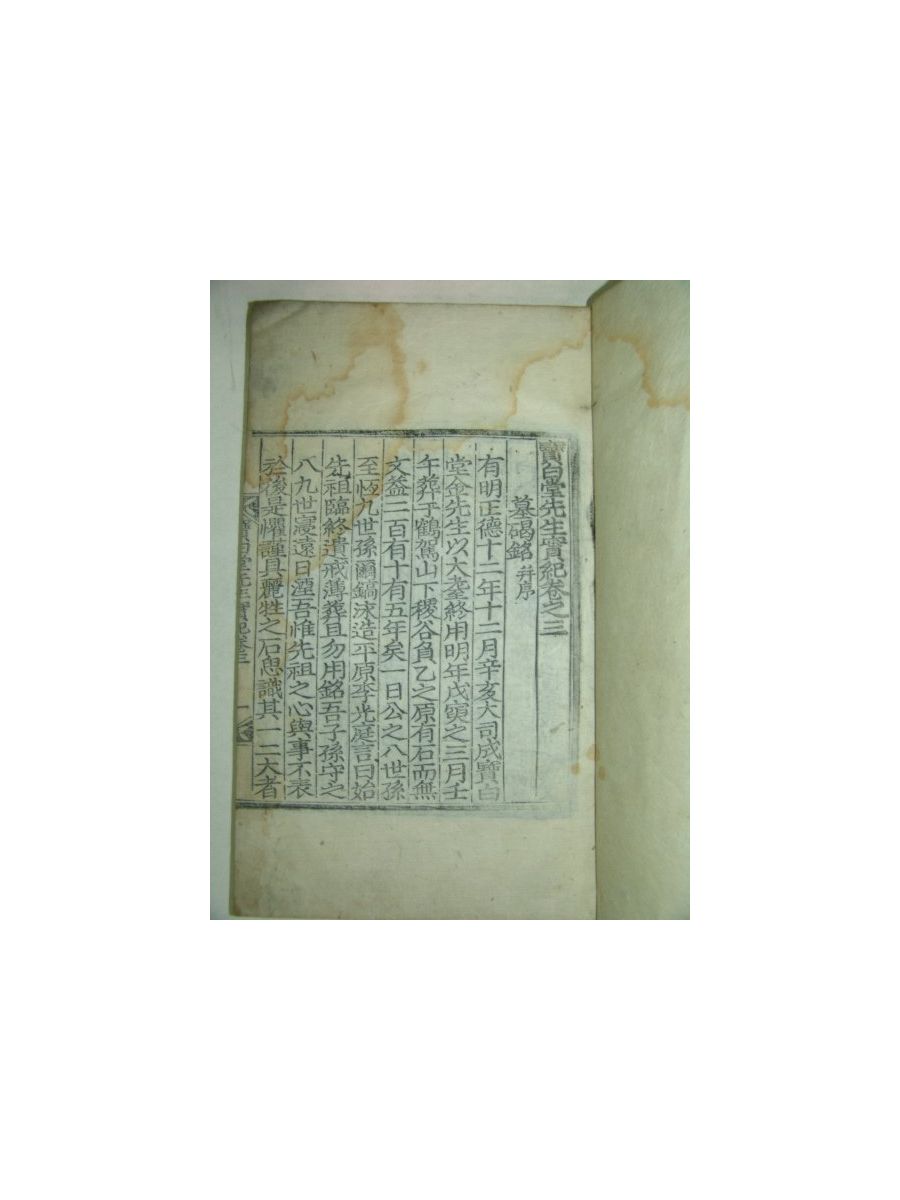 寶白堂先生實紀卷之三
墓碣銘 幷序
有明正德十二年十二月辛亥大司成寶白
堂金先生以大耋終用明年戊寅之三月壬
午葬于鶴駕山下稷谷負乙之原有石而無
文盖二百有十有五年矣一日公之八世孫
至恒九世孫爾鎬涕造平原李光庭言曰始
先祖臨終遺戒薄葬且勿用銘吾子孫守之
八九世寖遠日湮吾惟先祖之心與事不表
於後是懼謹具麗牲之石思識其一二大者
寶白堂先生實紀卷三 一